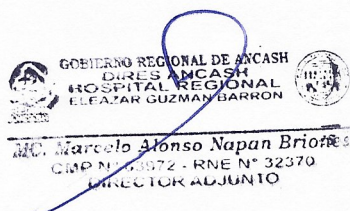 GOBIERNO REGIONAL DE ANCASH
DIRES ANCASH
HOSPITAL REGIONAL
ELEAZAR GUZMAN BARRON
MC. Marcelo Alonso Napan Briones
CMP N° 63972 - RNE N° 32370
DIRECTOR ADJUNTO